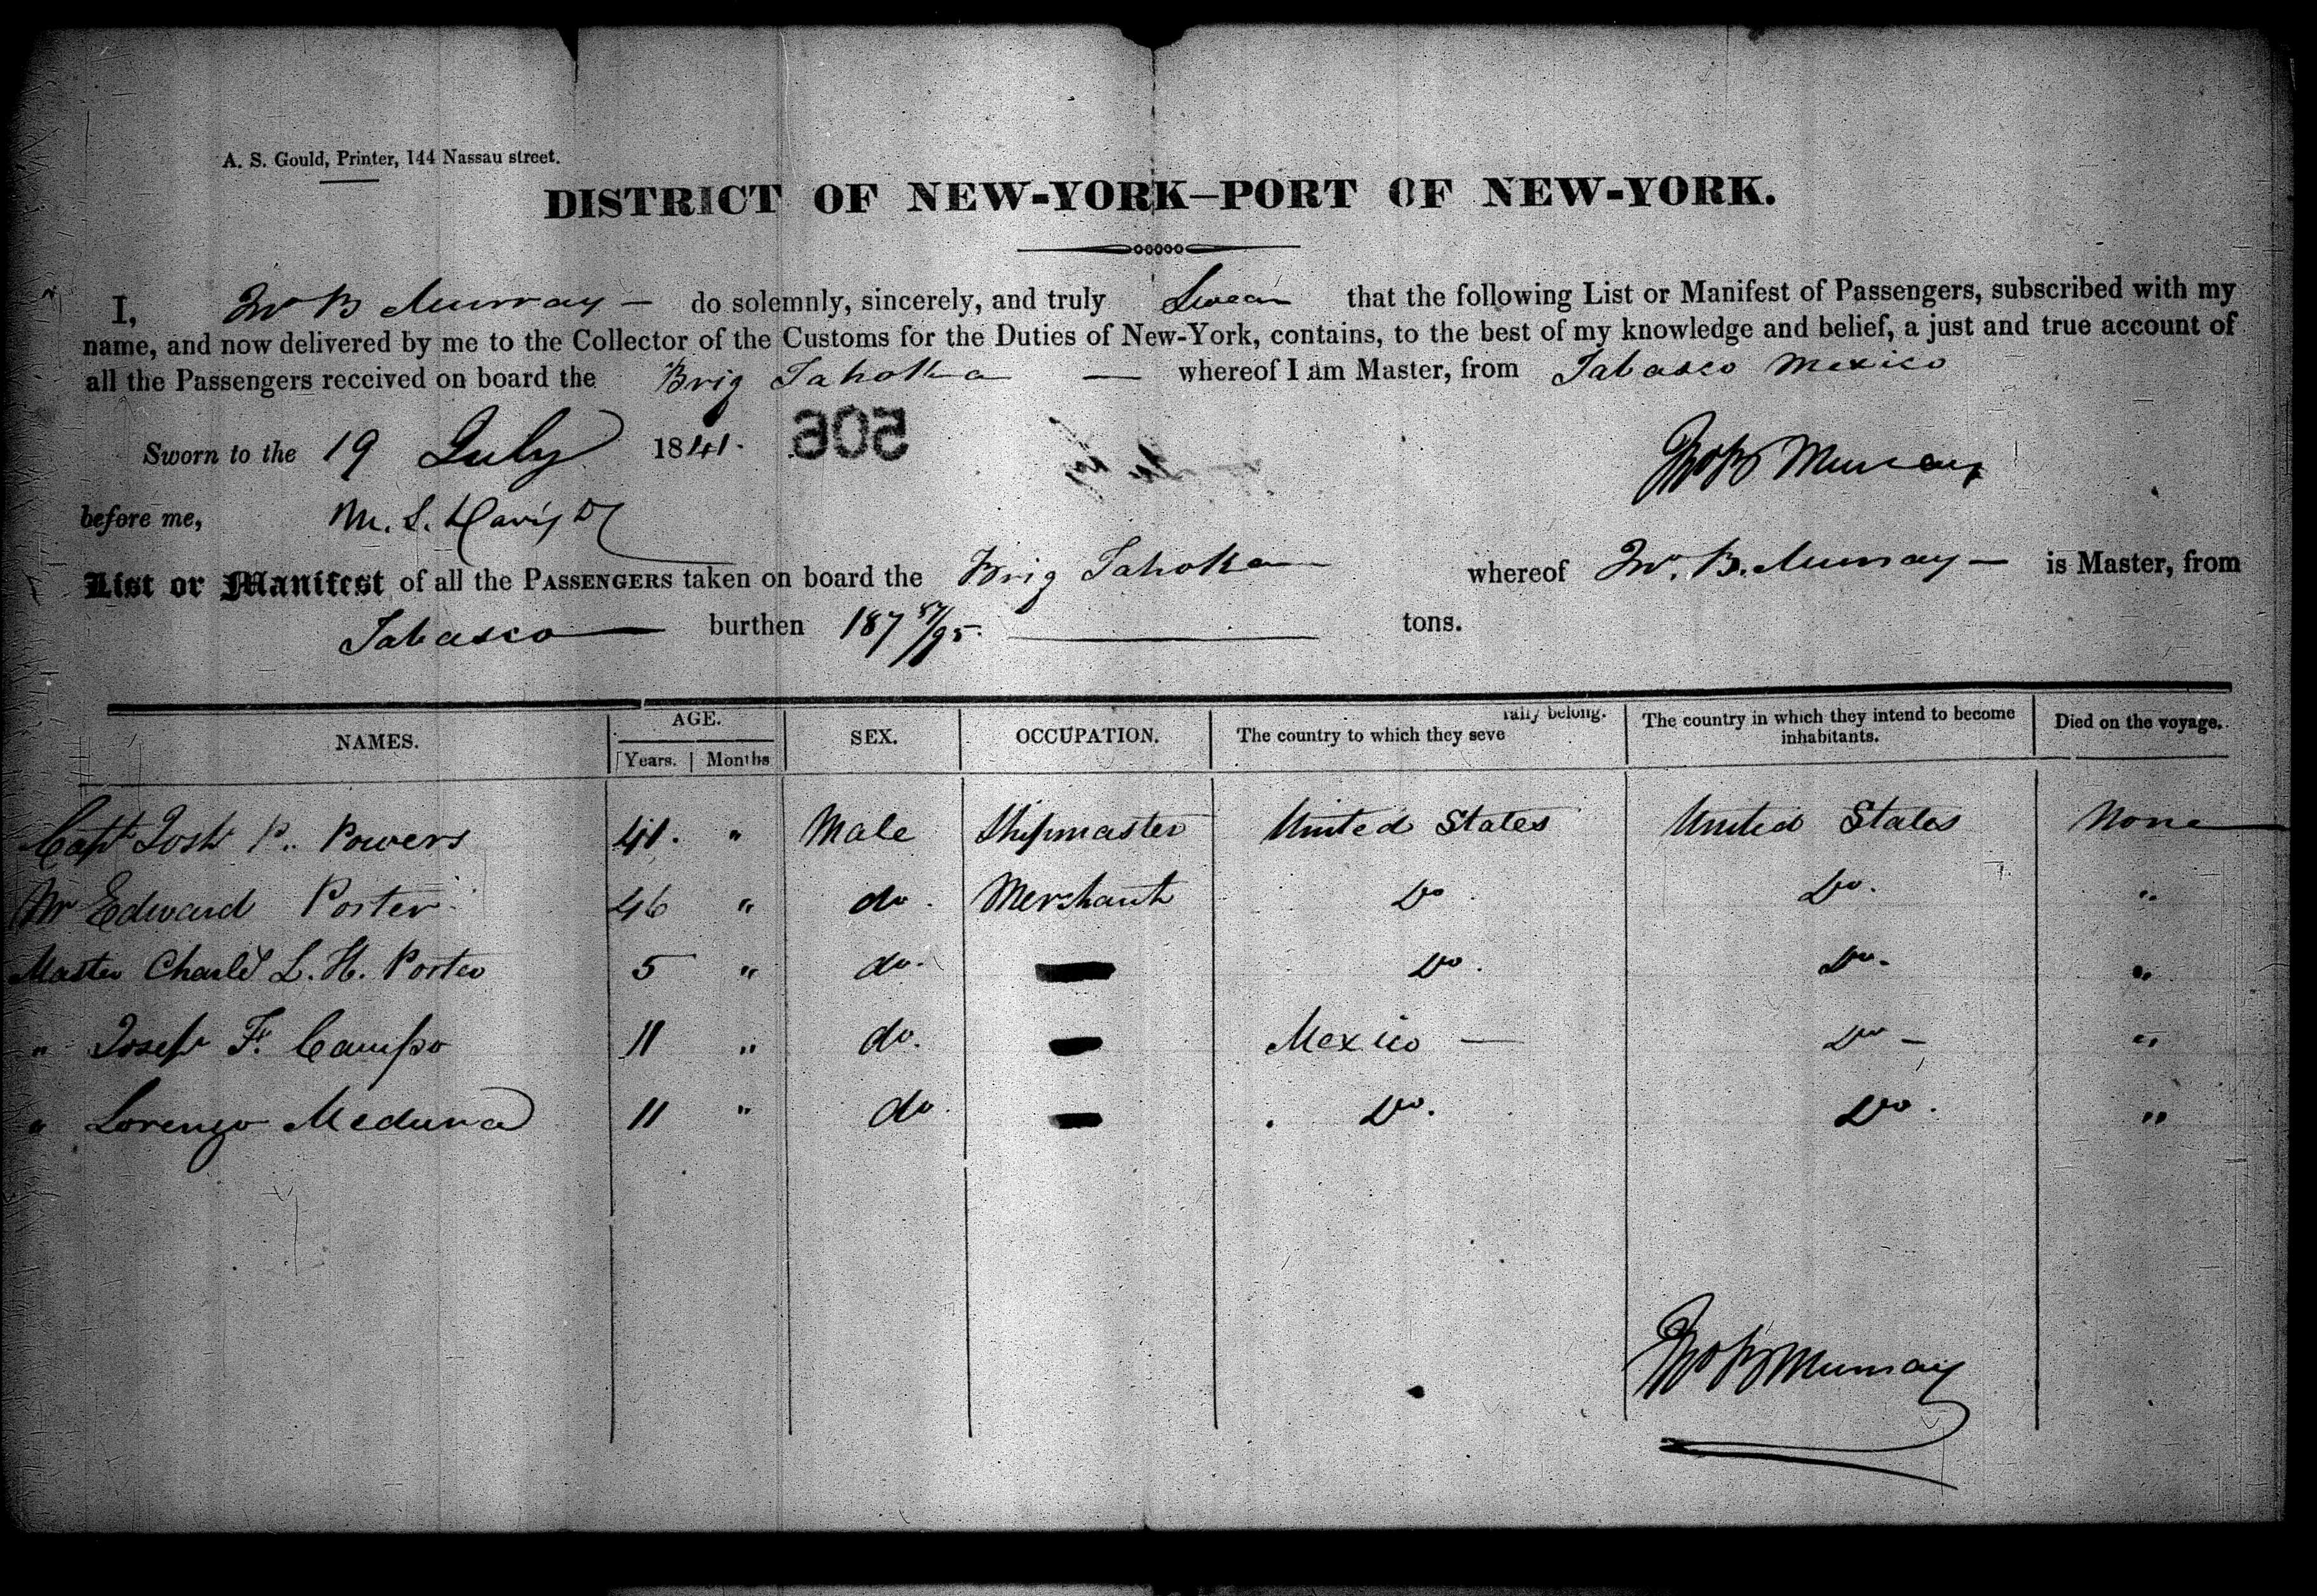 A. S. Gould, Printer, 144 Nassau street.
DISTRICT OF NEW-YORK—PORT OF NEW-YORK.
I, Jno B Murray — do solemnly, sincerely, and truly Swear that the following List or Manifest of Passengers, subscribed with my
name, and now delivered by me to the Collector of the Customs for the Duties of New-York, contains, to the best of my knowledge and belief, a just and true account of
all the Passengers received on board the Brig Tahoka — whereof I am Master, from Tabasco Mexico
Sworn to the 19 July 1841. 506
Jno B Murray
before me, M. S.
List or Manifest of all the PASSENGERS taken on board the Brig Tahoka whereof Jno. B. Murray — is Master, from
Tabasco burthen 187 /95. tons.
NAMES. AGE. Years. Months SEX. OCCUPATION. The country to which they seve rally belong. The country in which they intend to become inhabitants. Died on the voyage.
Capt Josh P. Powers 41. " Male Shipmaster United States United States None
Mr Edward Porter 46 " do. Merchant Do Do. "
Master Charles L. H. Porter 5 " do. Do. Do. "
" Joseph F. Campo 11 " do. Mexico — Do — "
" Lorenzo Medina 11 " do. Do. Do. "
Jno B Murray